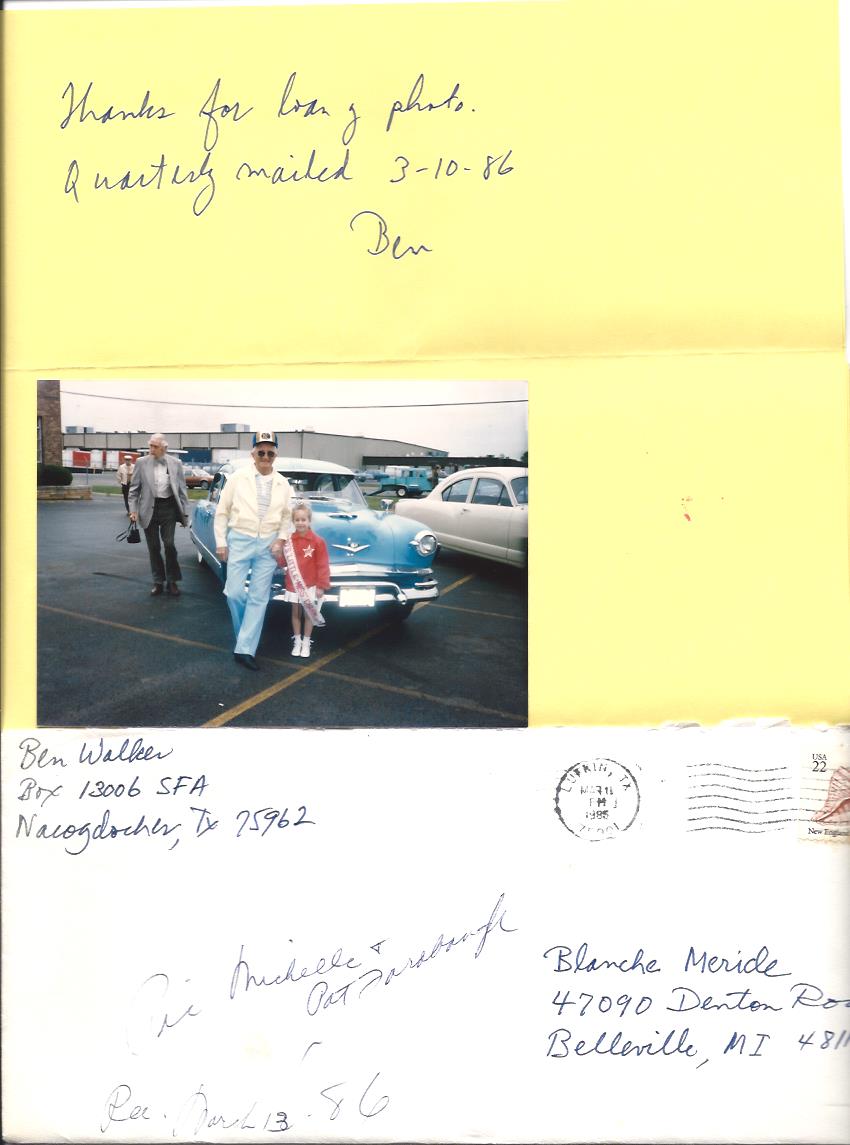 Thanks for loan of photo.
Quarterly mailed 3-10-86
Ben
Ben Walker
Box 13006 SFA
Nacogdoches, Tx 75962
LUFKIN, TX
MAR 11
PM
USA
22
New England
Pic Michelle &
Pat Farabaugh
Blanche Meride
47090 Denton Roa
Belleville, MI 481
Rec. March 13 - 86